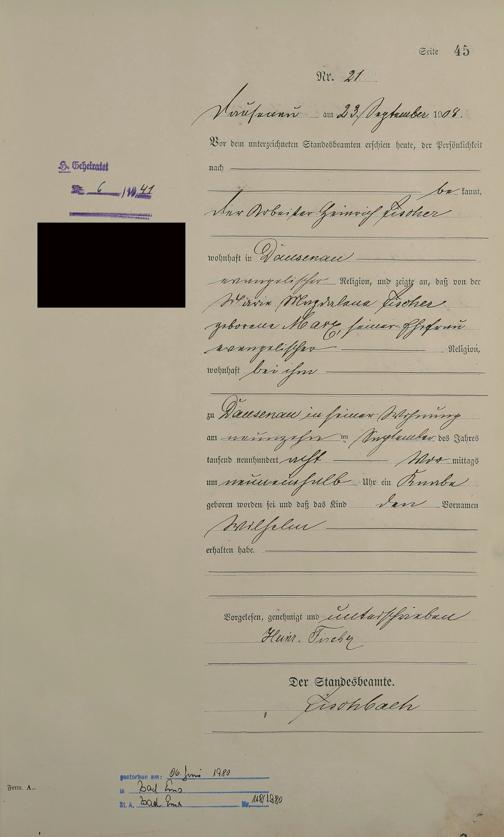 Seite 45
Nr. 21
Dausenau am 23. September 1908.
Vor dem unterzeichneten Standesbeamten erschien heute, der Persönlichkeit
nach
be kannt,
der Arbeiter Heinrich Fischer
wohnhaft in Dausenau
evangelischer Religion, und zeigte an, daß von der
Marie Magdalena Fischer
geborene Marx seiner Ehefrau
evangelischer Religion,
wohnhaft bei ihm
zu Dausenau in seiner Wohnung
am neunzehn ten September des Jahres
tausend neunhundert acht Vor mittags
um neuneinhalb Uhr ein Knabe
geboren worden sei und daß das Kind den Vornamen
Wilhelm
erhalten habe.
Vorgelesen, genehmigt und unterschrieben
Heinr. Fischer
Der Standesbeamte.
Fischbach
6 / 1941
gestorben am: 06. Juni 1980
in Bad Ems
St. A. Bad Ems Nr. 118/1980
Form. A.